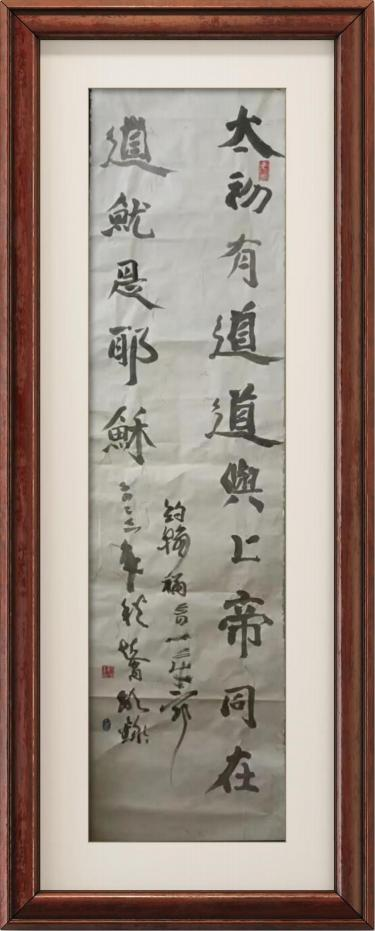 太初有道道與上帝同在
道就是耶穌
約翰福音一章一節
二〇二三年秋